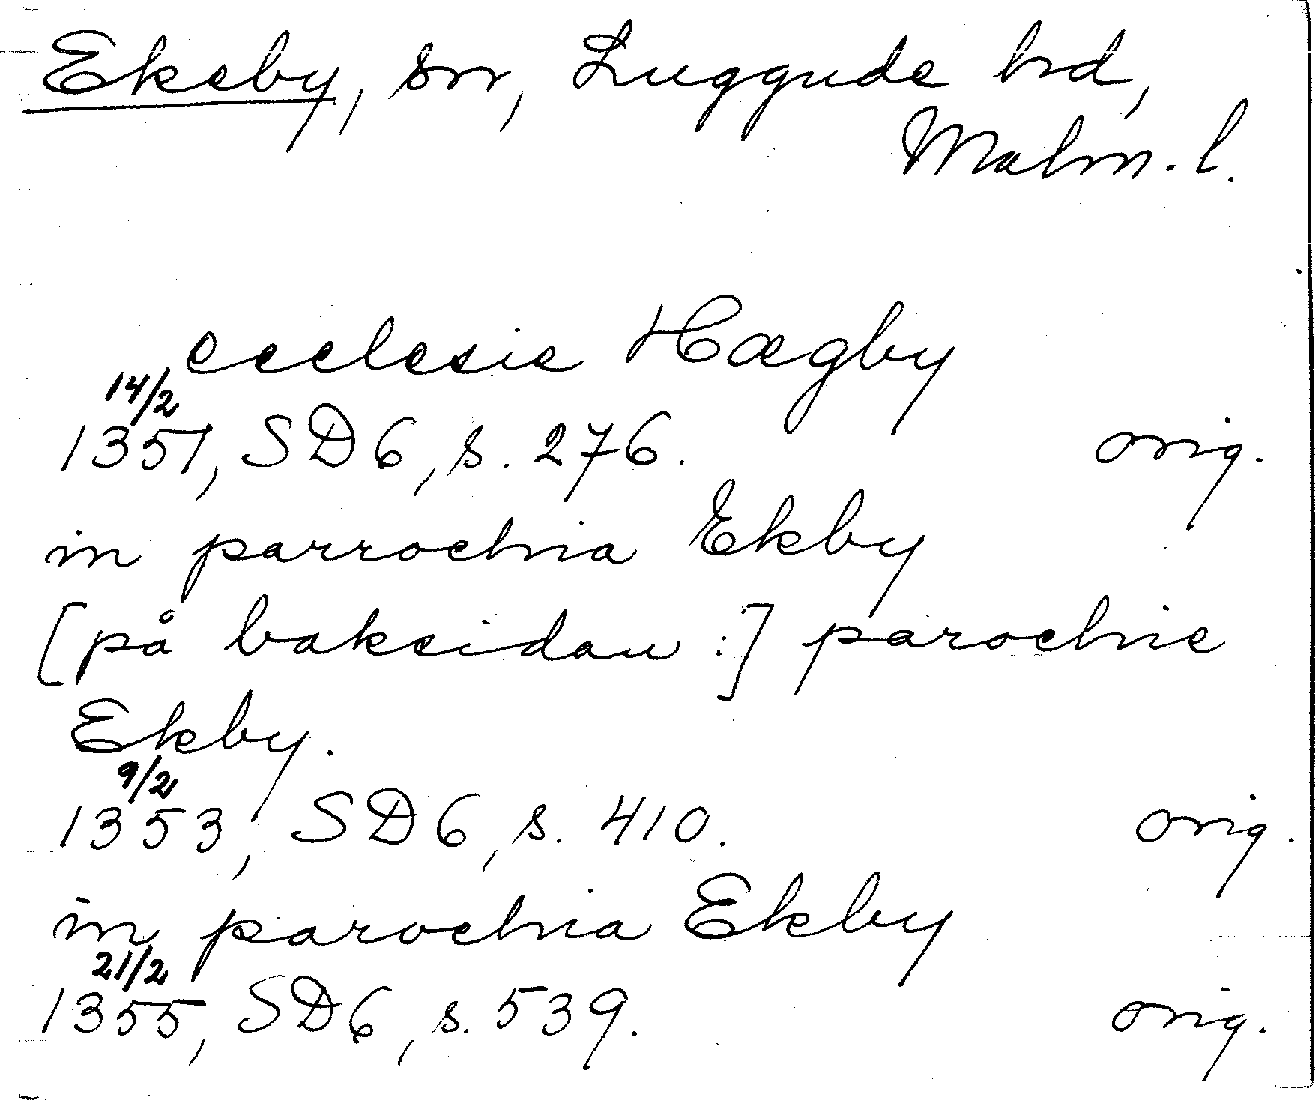 Ekeby, sn, Luggude hd,
Malm. l.
ecclesie Hægby
14/2
1351, SD6, s. 276. orig.
in parrochia Ekby
[på baksidan:] parochie
Ekby.
9/2
1353, SD6, s. 410. orig.
in parochia Ekby
21/2
1355, SD6, s. 539. orig.